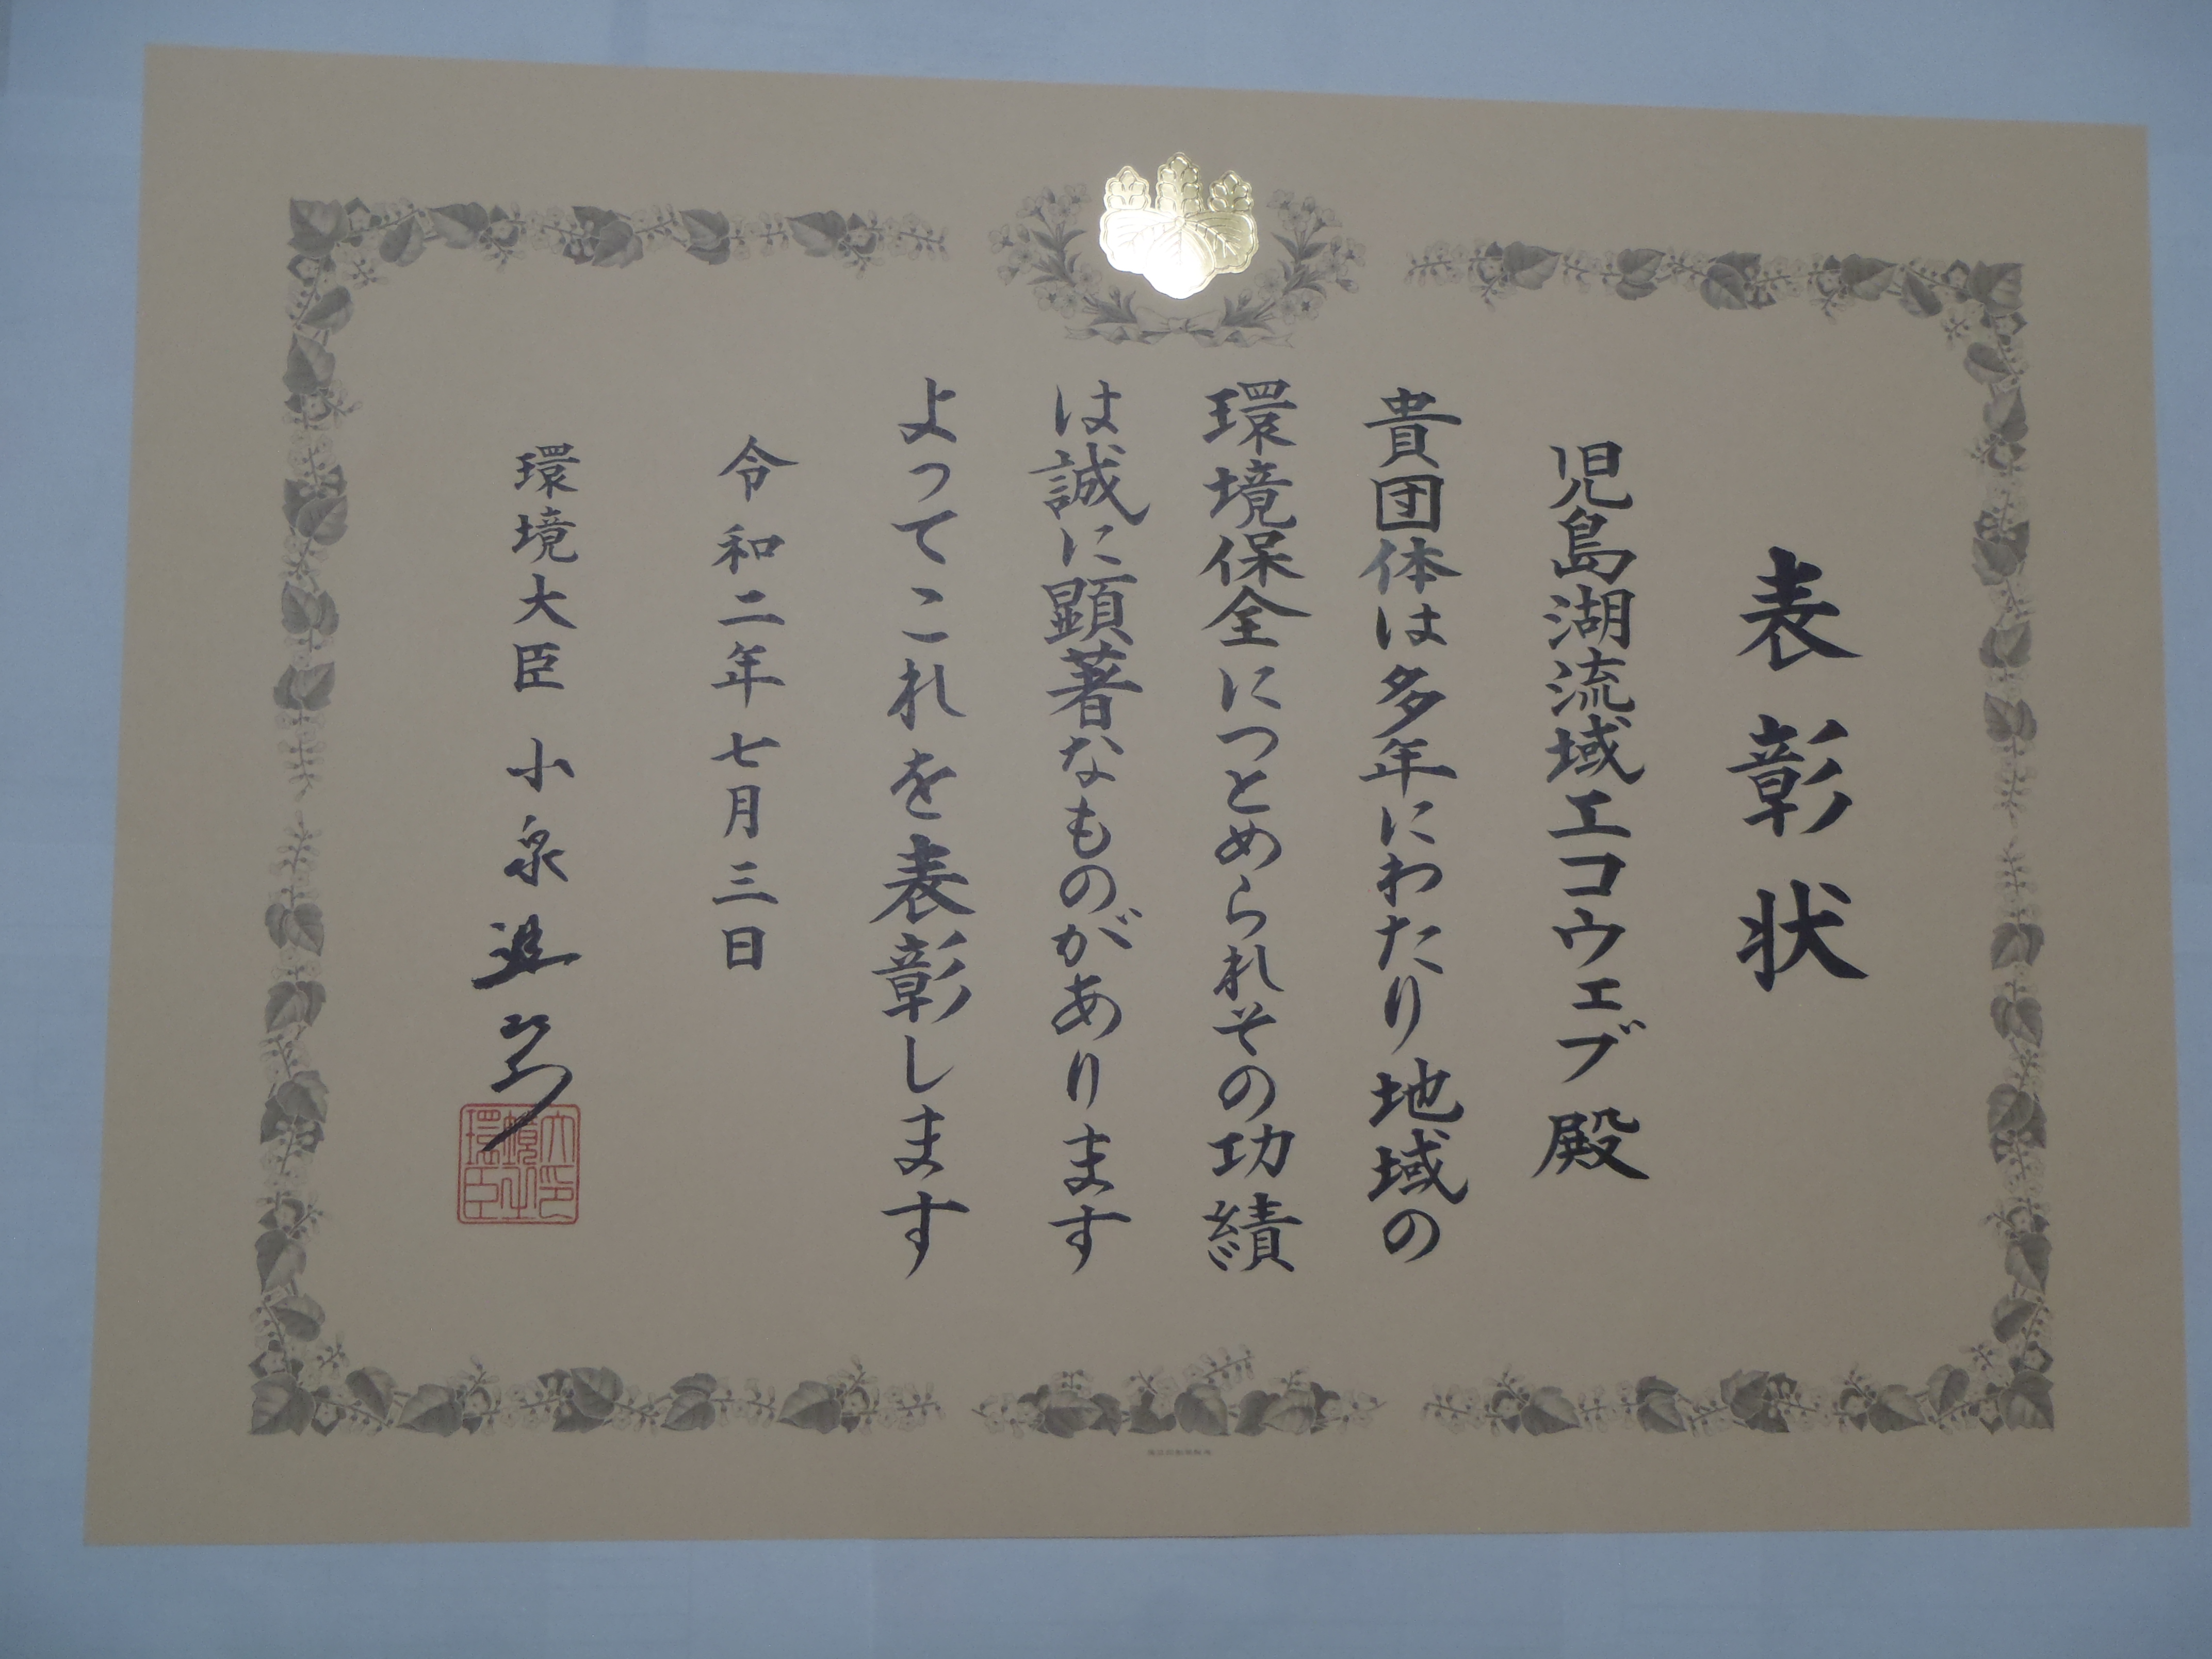 表彰状
児島湖流域エコウェブ 殿
貴団体は多年にわたり地域の
環境保全につとめられその功績
は誠に顕著なものがあります
よってこれを表彰します
令和二年七月三日
環境大臣 小泉進次郎